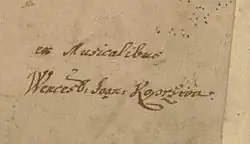 ex Musicalibus
Wencesl: Joan: Koprživa